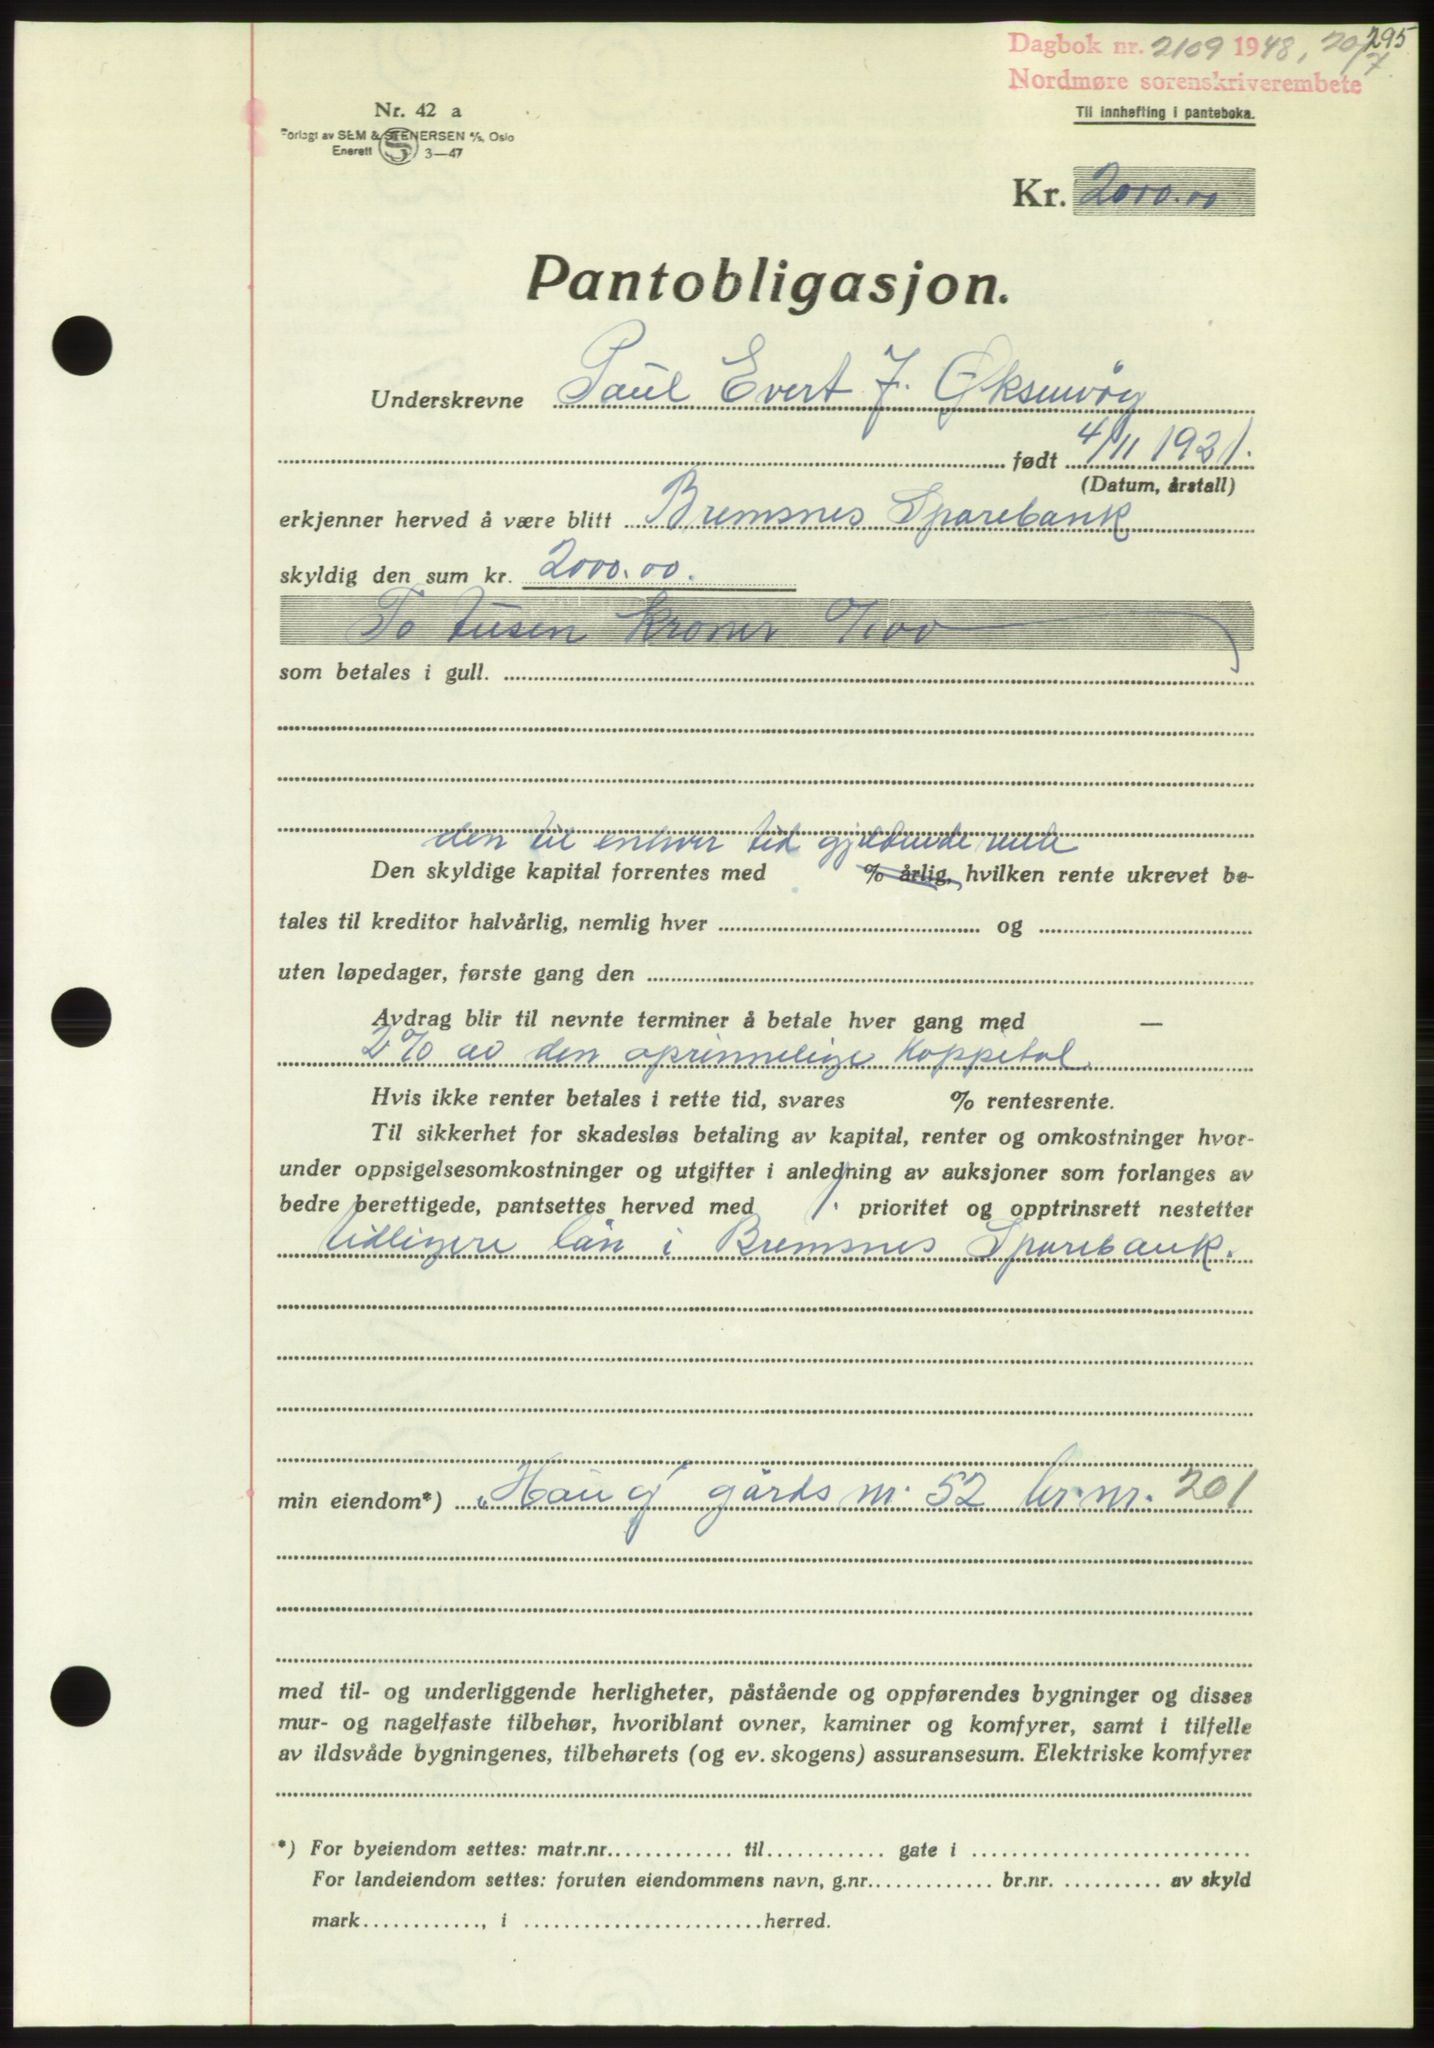 295
Dagbok nr. 2109 1948, 20/7
Nordmøre sorenskriverembete
Til innhefting i panteboka.
Nr. 42 a
Forlagt av SEM & STENERSEN A/S, Oslo
Enerett S 3—47
Kr. 2000.00
Pantobligasjon.
Underskrevne Paul Evert J. Øksenvåg
født 4/11 1921.
(Datum, årstall)
erkjenner herved å være blitt Bremsnes Sparebank
skyldig den sum kr. 2000.00.
To tusen kroner 0/100
som betales i gull.
den til enhver tid gjeldende rente
Den skyldige kapital forrentes med % årlig, hvilken rente ukrevet be-
tales til kreditor halvårlig, nemlig hver og
uten løpedager, første gang den
Avdrag blir til nevnte terminer å betale hver gang med —
2% av den oprinnelige kappital.
Hvis ikke renter betales i rette tid, svares % rentesrente.
Til sikkerhet for skadesløs betaling av kapital, renter og omkostninger hvor-
under oppsigelsesomkostninger og utgifter i anledning av auksjoner som forlanges av
bedre berettigede, pantsettes herved med 1. prioritet og opptrinsrett nestetter
tidligere lån i Bremsnes Sparebank.
min eiendom*) „Haug" gårds nr. 52 br. nr. 201
med til- og underliggende herligheter, påstående og oppførendes bygninger og disses
mur- og nagelfaste tilbehør, hvoriblant ovner, kaminer og komfyrer, samt i tilfelle
av ildsvåde bygningenes, tilbehørets (og ev. skogens) assuransesum. Elektriske komfyrer
*) For byeiendom settes: matr.nr. til gate i
For landeiendom settes: foruten eiendommens navn, g.nr. br.nr. av skyld
mark , i herred.